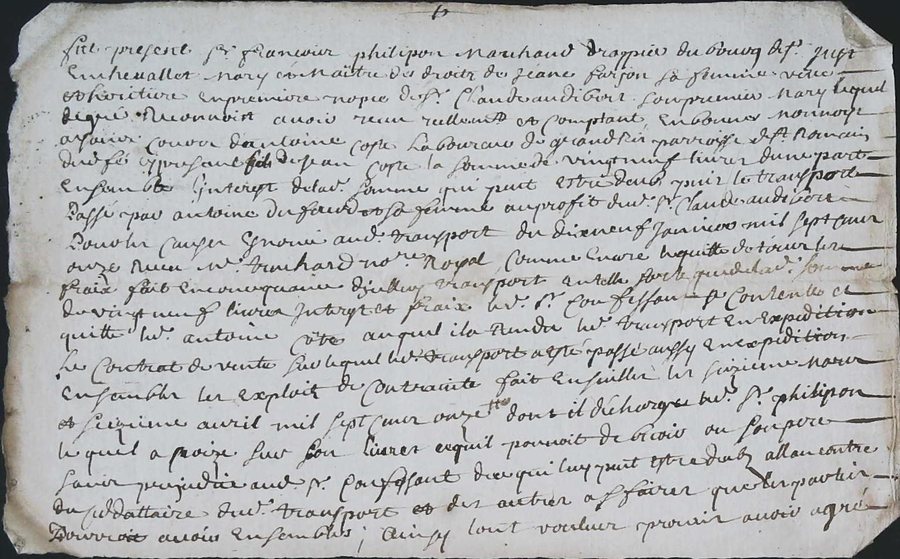 fut present Sr. francois philipon Marchand drappie du bourg de St. Just
En chevallet Mary et Maitre des droits de Jeane farjon sa femme vefve
et heritiere En premiere nopce de Sr. Claude audibert son premier Mary lequel
de gré Reconnoit avoir receu reellemt et comptant En bonne monnoye
ayant cours d'antoine coste Laboureur de parroisse de St. Romain
dud. fé cy present fils de Jean Coste la somme de vingt neuf livres dune part
Ensemble L'interest de lad. somme qui peut Estre deub puis le transport
Passé par antoine du et sa femme au profit dud. Sr. Claude audibert
Pour les causes Enoncé aud. transport du dixneuf Janvier mil sept cens
onze Receu Me. notre Royal, comme Encore le quitte de tous les
fraix fait En consequance dudt. transport En telle sorte que de lad. somme
de vingt neuf livres Interest et fraix led. Sr. Confessant se Contente et
quitte led. antoine Côte auquel il a Rendu led. transport En Expedition
Le Contrat de vente sur lequel led. transport a esté passé aussy En expedition
Ensemble les Exploit de Contrainte fait En suitte les Mars
et seizieme avril mil sept cens onze dont il décharge led. Sr. philipon
lequel a sur son livres ce qu'il pouvoit debvoir au
sans prejudice aud. Sr. Confessant de ce qui luy peut estre deub allancontre
du dud. transport et des autres affaires que les parties
Pourroit avoir Ensemble; Ainsy lont voulues avoir agré